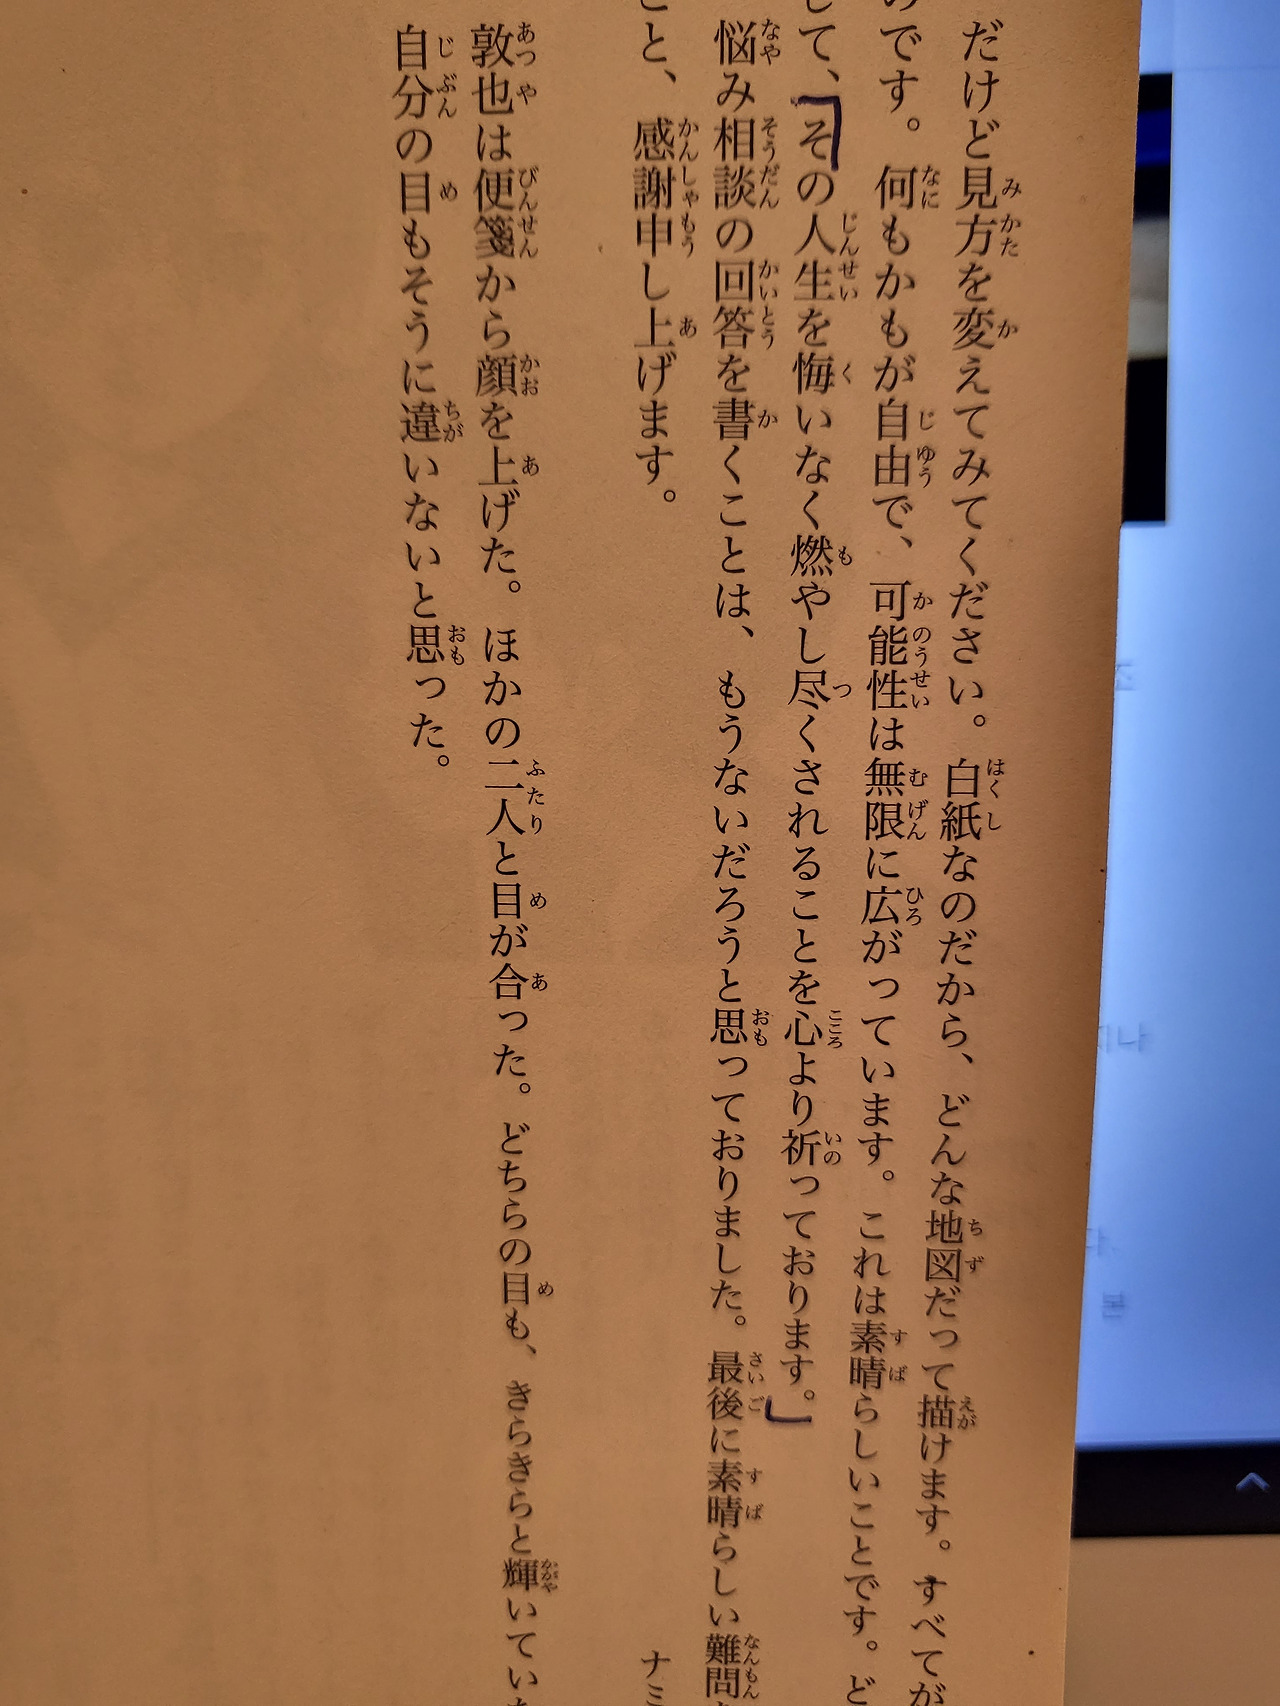 だけど見方を変えてみてください。白紙なのだから、どんな地図だって描けます。すべてが
のです。何もかもが自由で、可能性は無限に広がっています。これは素晴らしいことです。ど
して、「その人生を悔いなく燃やし尽くされることを心より祈っております。」
悩み相談の回答を書くことは、もうないだろうと思っておりました。最後に素晴らしい難問
こと、感謝申し上げます。
ナミ
敦也は便箋から顔を上げた。ほかの二人と目が合った。どちらの目も、きらきらと輝いてい
自分の目もそうに違いないと思った。